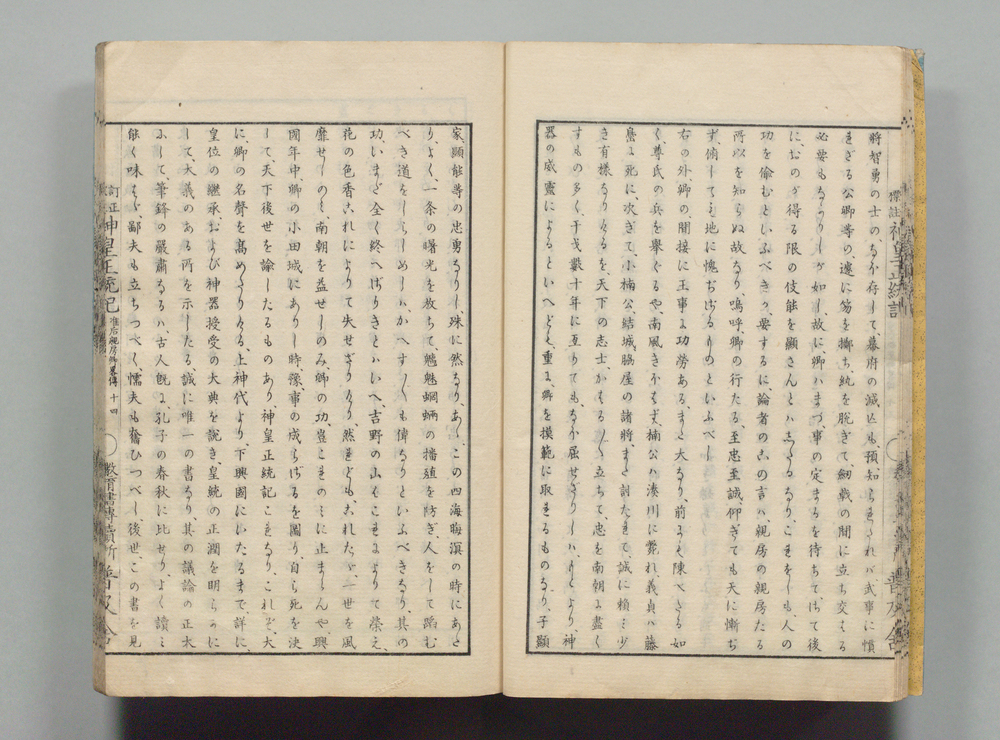 将智勇の士のなほ存して、幕府の滅亡も、預知られざれバ、武事に慣
れざる公卿等の、遽に笏を擲ち、紈を脱ぎて、劔戟の間に立ち交える
必要もなかりしが如し、故に卿ハまづ事の定まるを待ちて、さて後
に、おのが得る限の伎能を顕さんとハしたるなり、これをしも人の
功を偸むといふべきか、要するに、論者のこの言ハ、親房の親房たる
所以を知らぬ故なり、嗚呼、卿の行たる、至忠至誠、仰ぎても天に慚ぢ
ず、俯しても地に愧ぢざるものといふべし、
右の外、卿の、間接に王事に功労ある、また大なり、前にも陳べたる如
く、尊氏の兵を挙ぐるや、南風きほはず、楠公ハ湊川に斃れ、義貞ハ藤
島に死に、次ぎて、小楠公、結城、脇屋の諸将、また討たれて、誠に頼ミ少
き有様なりけるを、天下の志士、かはるがはる立ちて、忠を南朝に盡く
すもの多く、干戈数十年に亙りても、なほ屈せざりしハ、もとより神
器の威靈によるといへども、重に、卿を摸範に取れるものなり、子顯
家、顯能等の忠勇なりし、殊に然るなり、あゝこの四海晦溟の時にあた
り、よく一条の曙光を放ちて、魑魅蝄蜽の播殖を防ぎ、人をして蹈む
べき道をしらしめしハ、かへすがへすも偉なりといふべきなり、其の
功、いまだ全く終へざりきとハいへ、吉野の山も、これによりて榮え、
花の色香も、これによりて失せざりけり、然れども、これたゞ一世を風
靡せしのミ、南朝を益せしのみ、卿の功、豈これのミに止まらんや、興
國年中、卿の小田城にありし時、豫、事の成らざるを圖り、自ら死を決
して、天下後世を諭したるものあり、神皇正統記これなり、これぞ大
に、卿の名聲を高めたりける、上神代より、下興國にいたるまで、詳に
皇位の継承、および神器授受の大典を説き、皇統の正潤を明らかに
して、大義のある所を示したる、誠に唯一の書なり、其の議論の正大
にして、筆鋒の嚴肅なるハ、古人既に、孔子の春秋に比せり、よく讀ミ
能く味はゞ、鄙夫も立ちつべく、懦夫も奮ひつべし、後世、この書を見
訂正神皇正統記 准后親房卿畧傳 十四